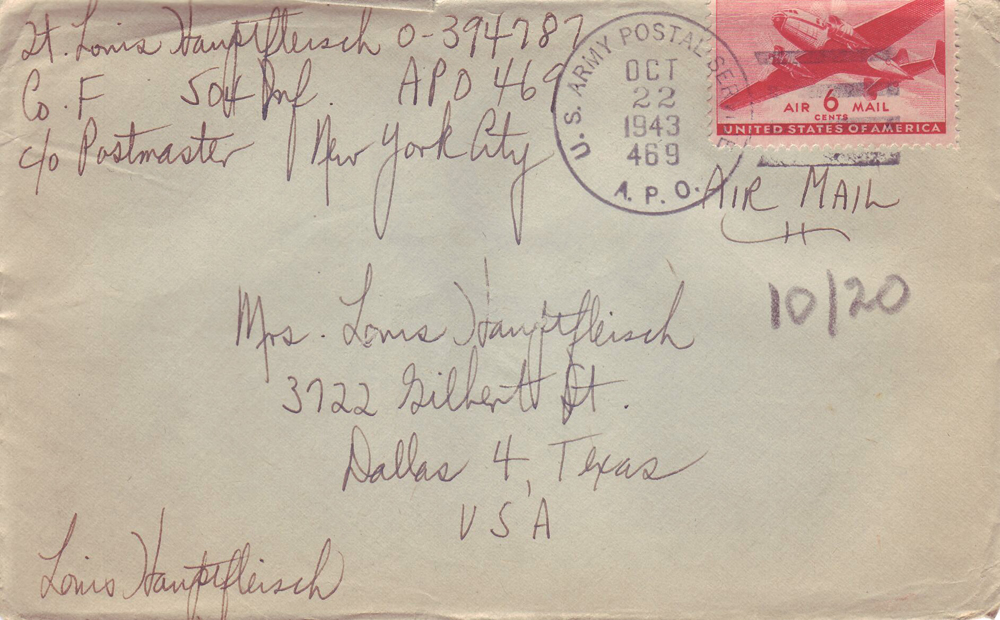 Lt. Louis Hauptfleisch O-394787
Co. F 504 Inf. APO 469
c/o Postmaster New York City
U.S. ARMY POSTAL SERVICE
OCT
22
1943
469
A.P.O.
AIR 6 MAIL
CENTS
UNITED STATES OF AMERICA
AIR MAIL
10/20
Mrs. Louis Hauptfleisch
3722 Gilbert St.
Dallas 4, Texas
USA
Louis Hauptfleisch